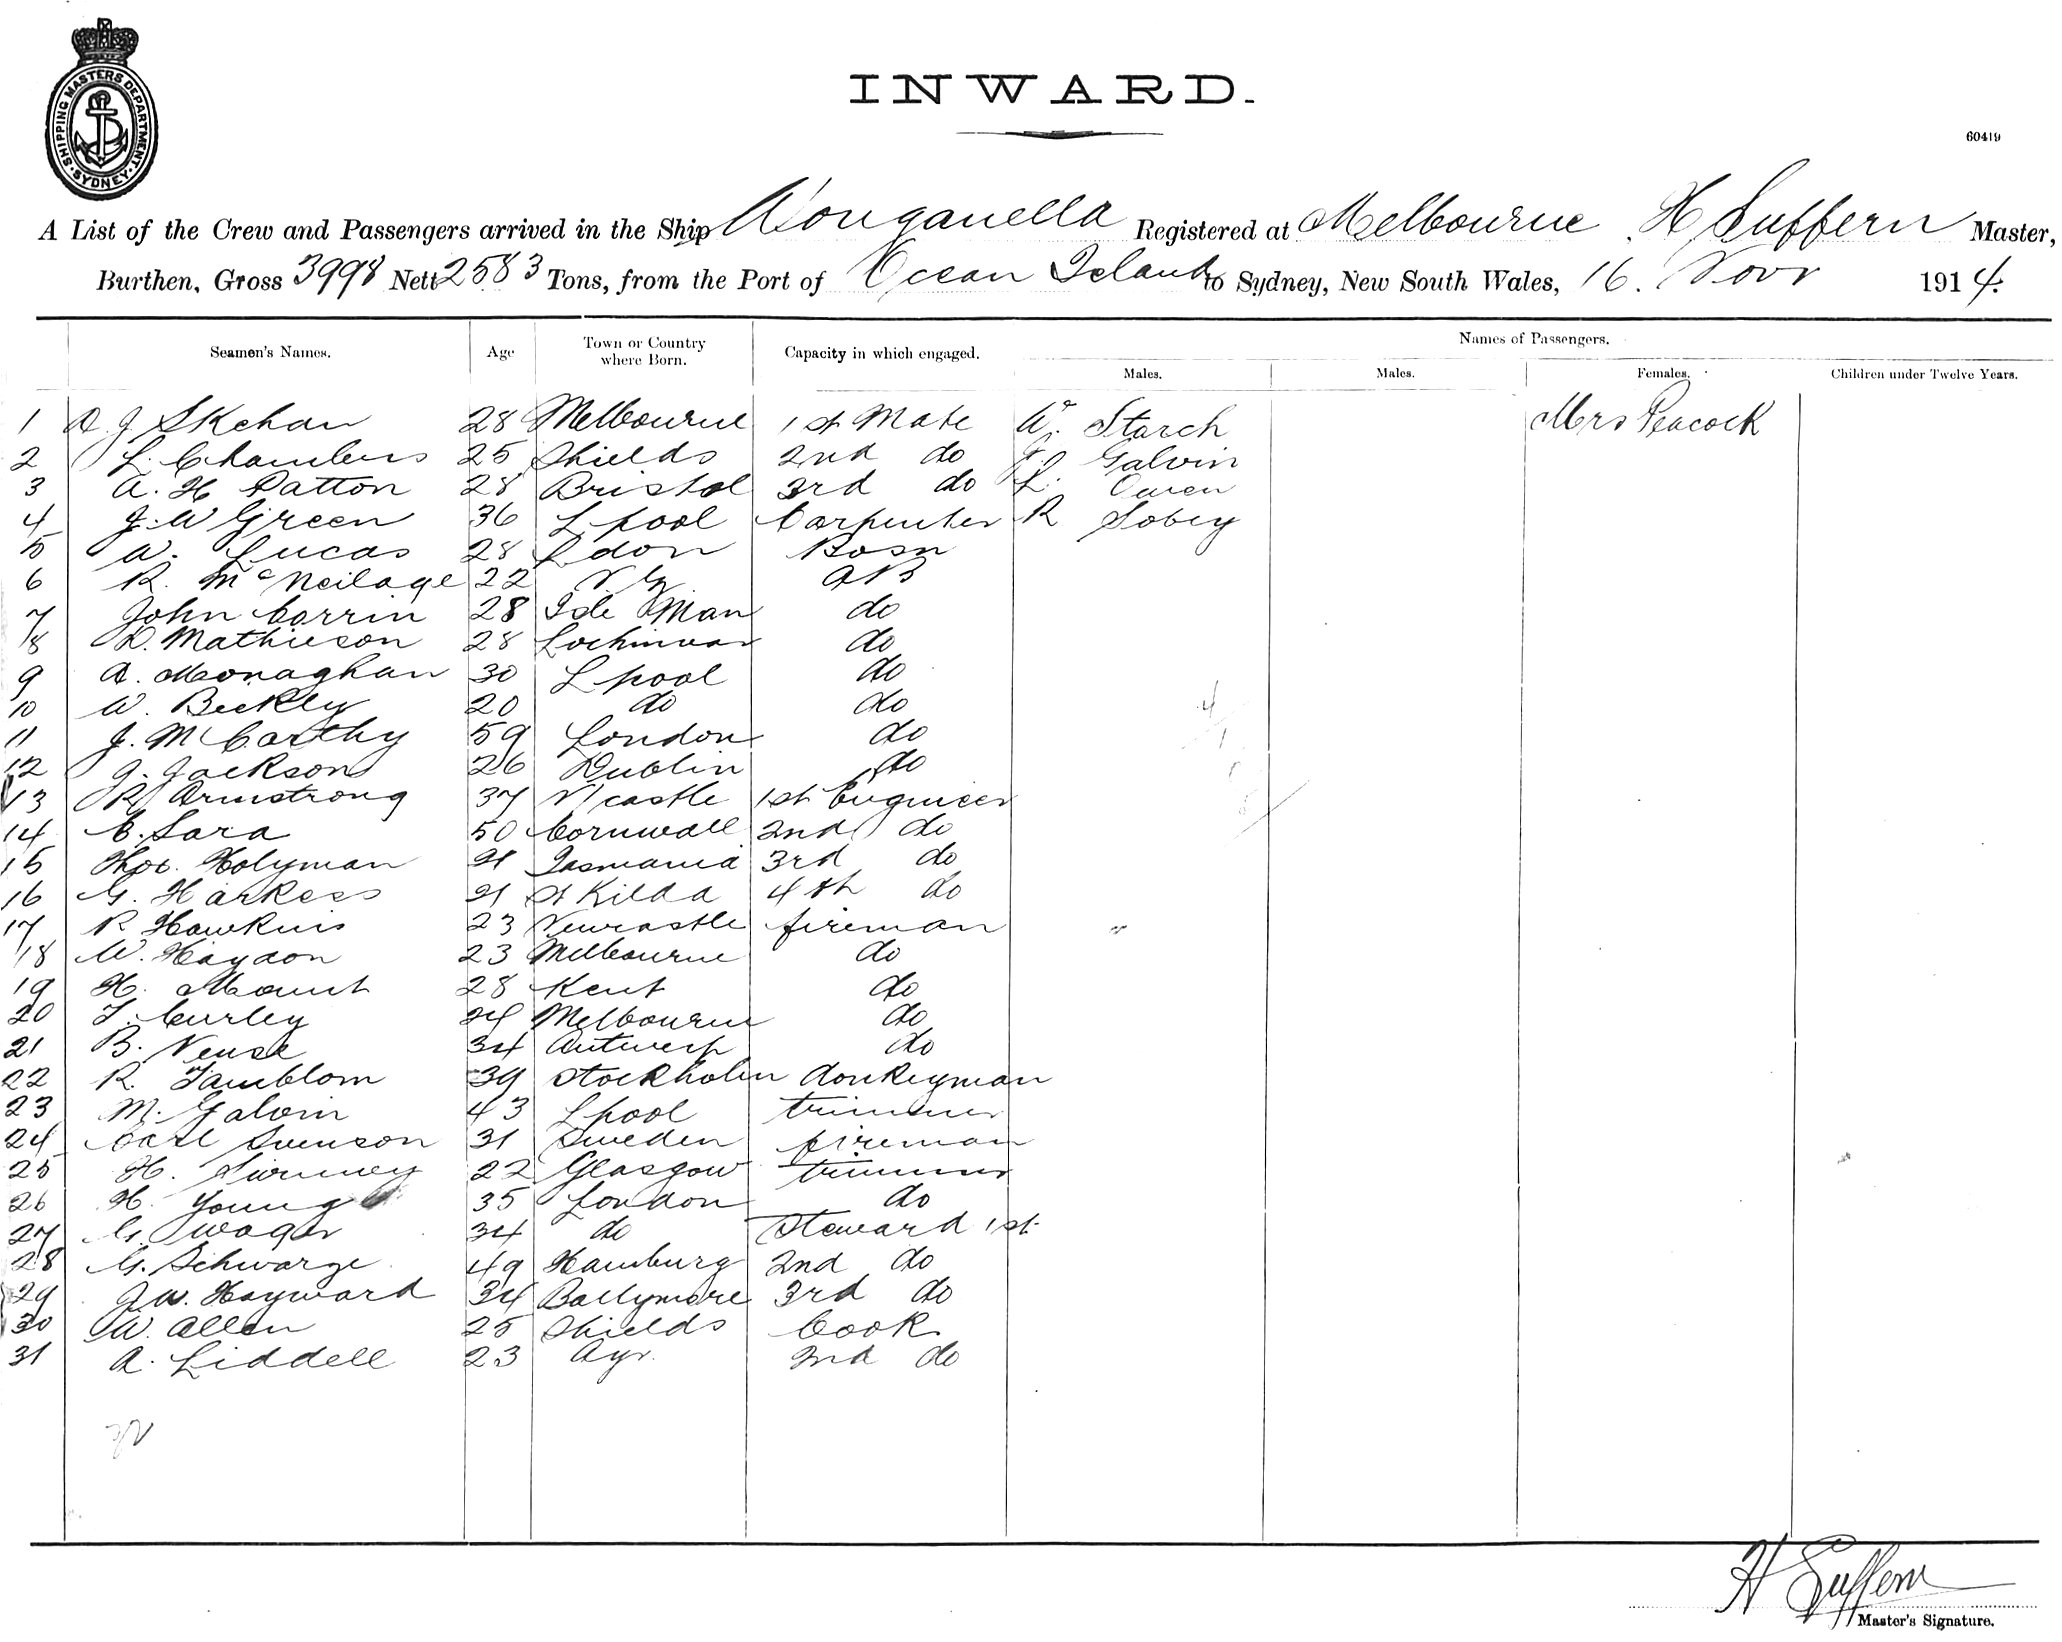 SHIPPING MASTERS DEPARTMENT
SYDNEY
INWARD.
60419
A List of the Crew and Passengers arrived in the Ship Wonganella Registered at Melbourne H Suffern Master,
Burthen, Gross 3998 Nett 2583 Tons, from the Port of Ocean Island to Sydney, New South Wales, 16. Novr 1914.
Seamen's Names. Age Town or Country where Born. Capacity in which engaged. Names of Passengers.
Males. Males. Females. Children under Twelve Years.
1 A. J Skehan 28 Melbourne 1st Mate W. Starch Mrs Peacock
2 L. Chambers 25 Shields 2nd do Galvin
3 A. H Patton 28 Bristol 3rd do L. Owen
4 J. W Green 36 L pool Carpenter R Sobey
5 W. Lucas 28 Ldon Bosn
6 R. McNeilage 22 N Z AB
7 John Corrin 28 Isle Man do
8 D. Mathieson 28 Lochinvar do
9 A. Monaghan 30 L pool do
10 W. Beckly 20 do do
11 J. McCarthy 59 London do
12 J. Jackson 26 Dublin do
13 R Armstrong 37 N castle 1st Engineer
14 C. Sara 50 Cornwall 2nd do
15 Thos. Holyman 21 Tasmania 3rd do
16 G. Harkess 21 St Kilda 4th do
17 R Hawkins 23 Newcastle fireman
18 W. Haydon 23 Melbourne do
19 H. Mount 28 Kent do
20 T. Curley 24 Melbourne do
21 B. Neuse 34 Antwerp do
22 R. Tamblom 39 Stockholm donkeyman
23 M. Galvin 43 L pool trimmer
24 Carl Svenson 31 Sweden fireman
25 H. 22 Glasgow trimmer
26 H. Young 35 London do
27 G. Wager 34 do Steward 1st
28 G. Schwarze 49 Hamburg 2nd do
29 J W. Hayward 34 Ballymore 3rd do
30 W. Allen 25 Shields Cook
31 A. Liddell 23 Ayr. 2nd do
H Suffern
Master's Signature.